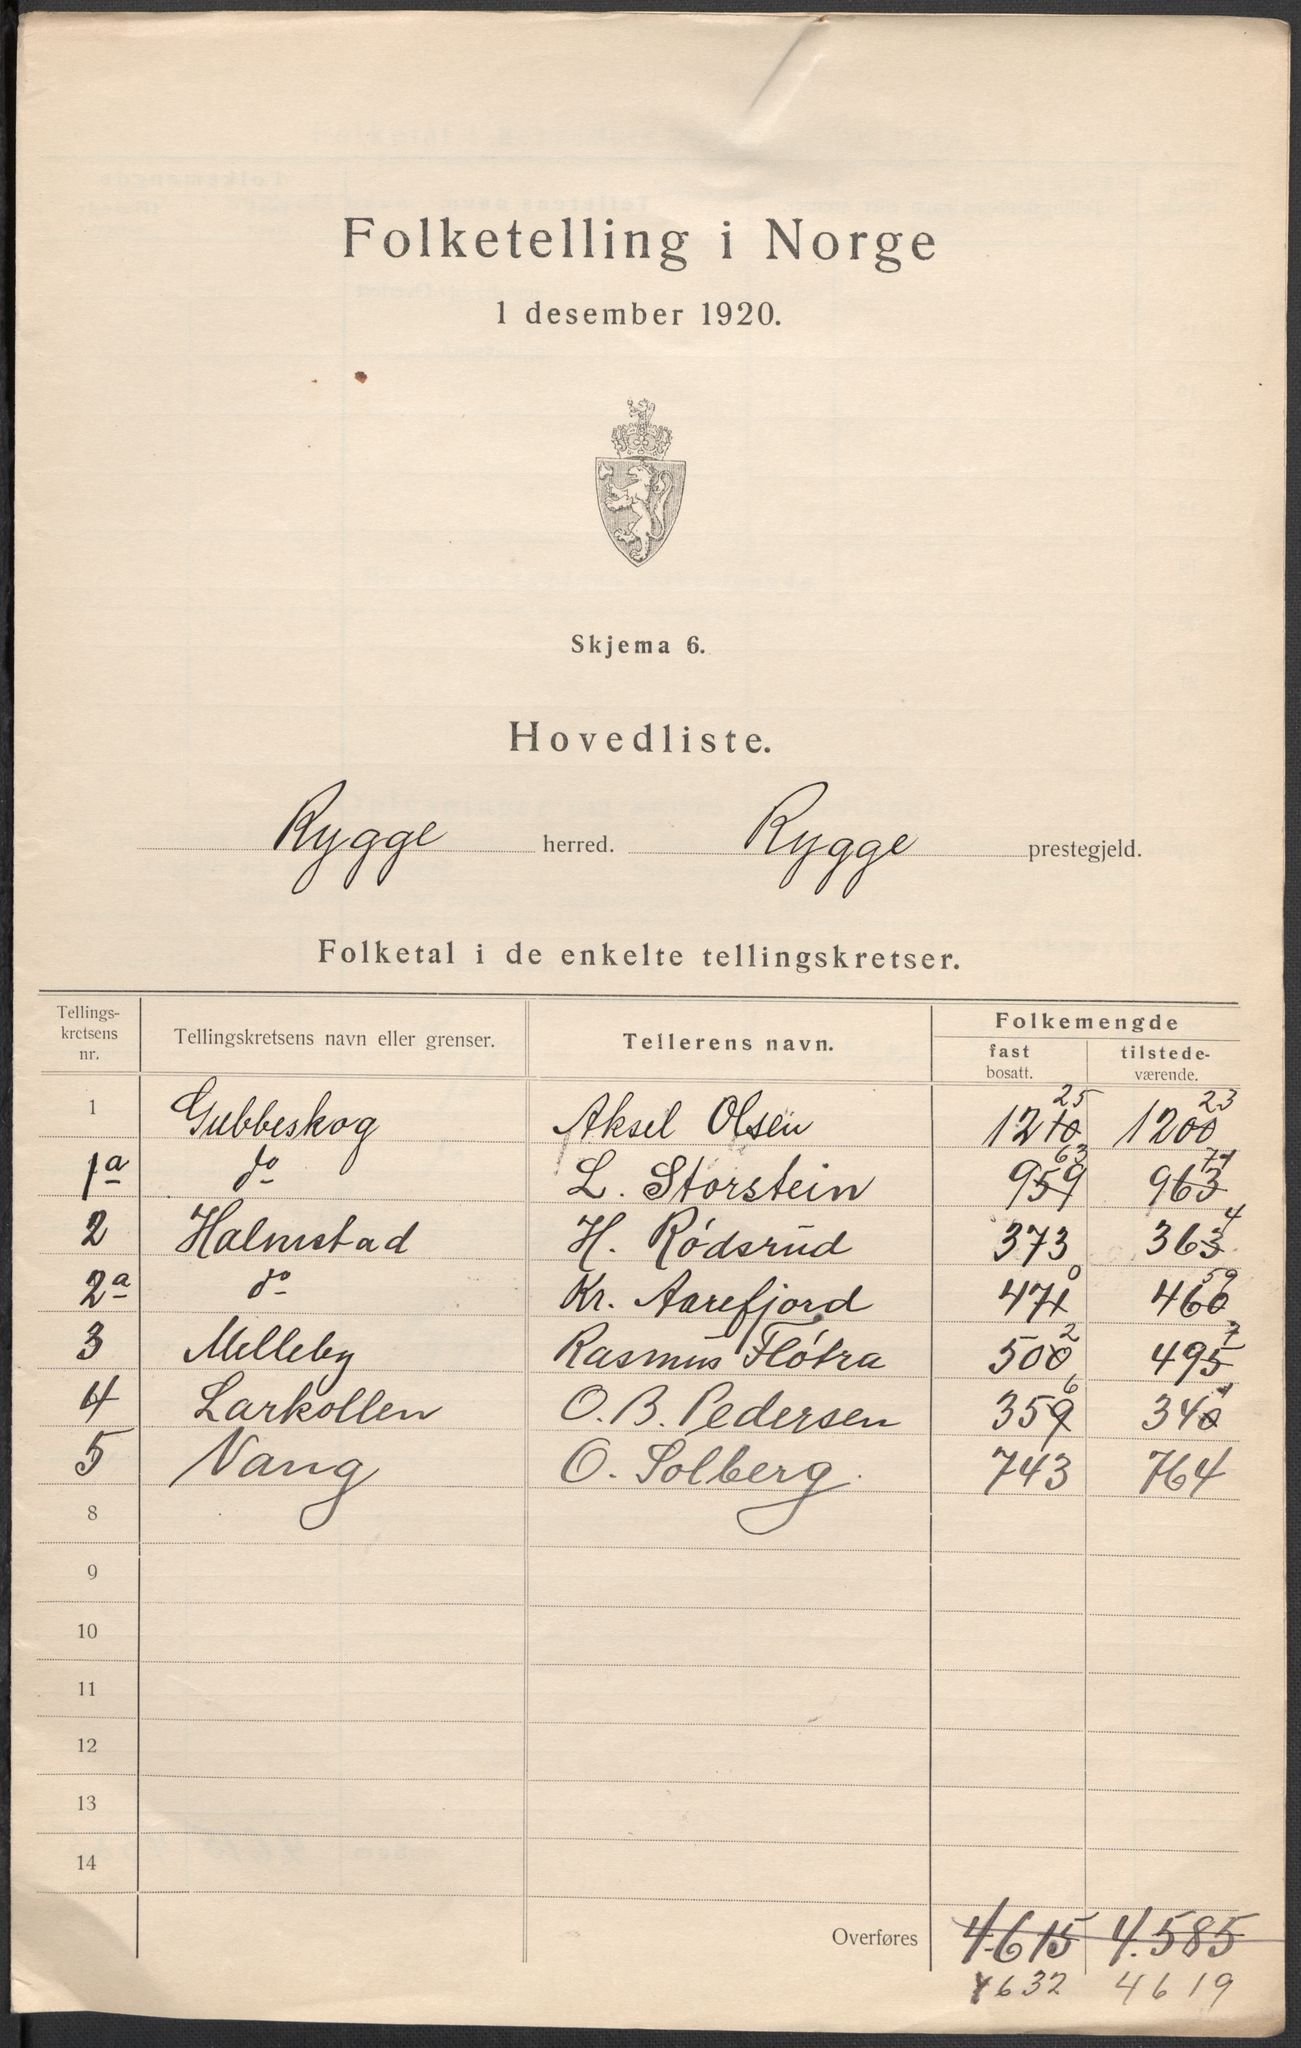 Folketelling i Norge
1 desember 1920.
Skjema 6.
Hovedliste.
Rygge herred. Rygge prestegjeld.
Folketal i de enkelte tellingskretser.
Tellings-
kretsens
nr.
Tellingskretsens navn eller grenser.
Tellerens navn.
Folkemengde
fast
bosatt.
tilstede-
værende.
25 23
1 Gubbeskog Aksel Olsen 1210 1200
63 71
1a do L. Storstein 959 963
4
2 Halmstad H. Rødsrud 373 363
0 59
2a do Kr. Aarefjord 471 460
2 7
3 Melleby Rasmus Fløtra 500 495
6 1
4 Larkollen O. B. Pedersen 359 340
5 Vang O. Solberg. 743 764
8
9
10
11
12
13
14
Overføres 4615 4.585
4632 4619